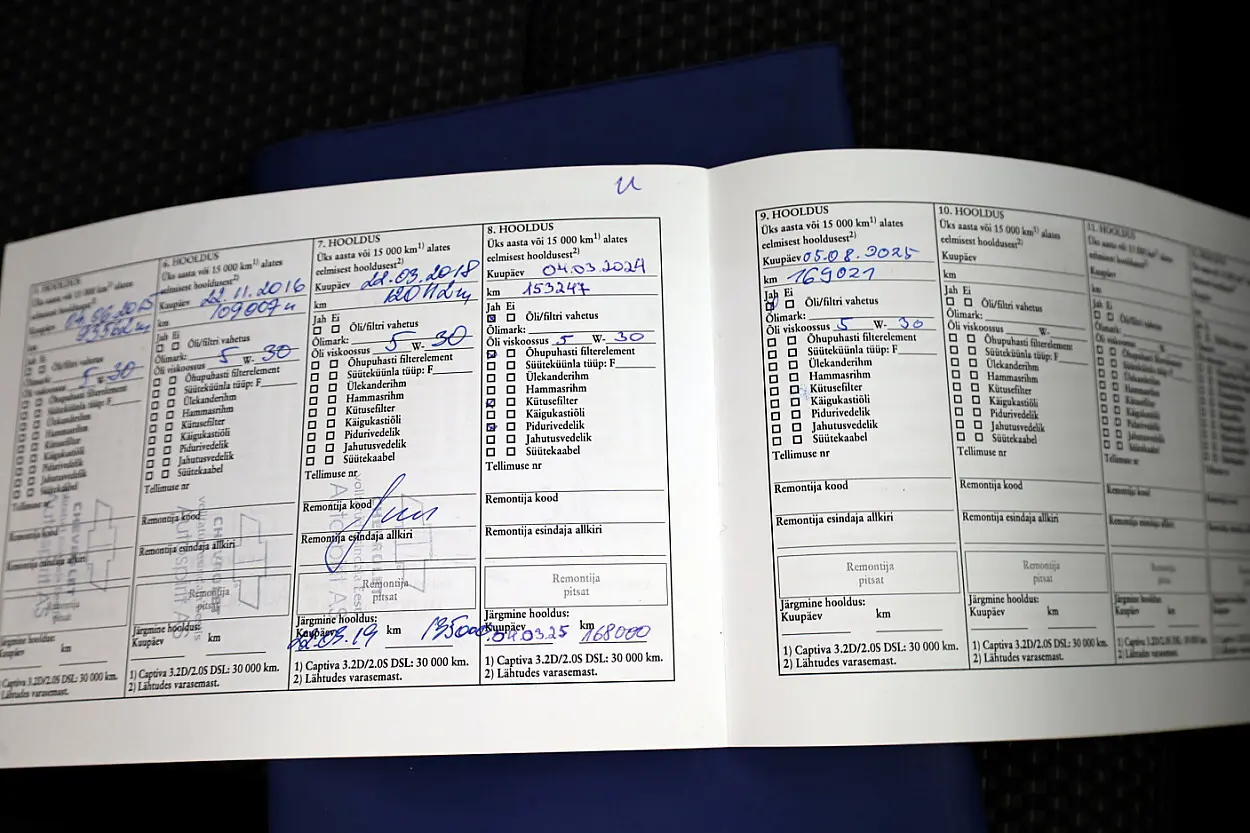 u
5. HOOLDUS
Üks aasta või 15 000 km¹⁾ alates
eelmisest hooldusest²⁾
Kuupäev 04.06.2015
km 93562 km
Jah Ei
Õli/filtri vahetus
Õlimark:
Õli viskoossus 5 W- 30
Õhupuhasti filterelement
Süüteküünla tüüp: F
Ülekanderihm
Hammasrihm
Kütusefilter
Käigukastiõli
Pidurivedelik
Jahutusvedelik
Süütekaabel
Tellimuse nr
Remontija kood
Remontija esindaja allkiri
CHEVROLET
Remontija
pitsat
Järgmine hooldus:
Kuupäev km
1) Captiva 3.2D/2.0S DSL: 30 000 km.
2) Lähtudes varasemast.
6. HOOLDUS
Üks aasta või 15 000 km¹⁾ alates
eelmisest hooldusest²⁾
Kuupäev 22.11.2016
km 109007 km
Jah Ei
Õli/filtri vahetus
Õlimark:
Õli viskoossus 5 W- 30
Õhupuhasti filterelement
Süüteküünla tüüp: F
Ülekanderihm
Hammasrihm
Kütusefilter
Käigukastiõli
Pidurivedelik
Jahutusvedelik
Süütekaabel
Tellimuse nr
Remontija kood
Remontija esindaja allkiri
CHEVROLET
Remontija
pitsat
Järgmine hooldus:
Kuupäev km
1) Captiva 3.2D/2.0S DSL: 30 000 km.
2) Lähtudes varasemast.
7. HOOLDUS
Üks aasta või 15 000 km¹⁾ alates
eelmisest hooldusest²⁾
Kuupäev 22.03.2018
km 120112 km
Jah Ei
Õli/filtri vahetus
Õlimark:
Õli viskoossus 5 W- 30
Õhupuhasti filterelement
Süüteküünla tüüp: F
Ülekanderihm
Hammasrihm
Kütusefilter
Käigukastiõli
Pidurivedelik
Jahutusvedelik
Süütekaabel
Tellimuse nr
Remontija kood
Remontija esindaja allkiri
CHEVROLET
Remontija
pitsat
Järgmine hooldus:
Kuupäev 22.03.19 km 135000
1) Captiva 3.2D/2.0S DSL: 30 000 km.
2) Lähtudes varasemast.
8. HOOLDUS
Üks aasta või 15 000 km¹⁾ alates
eelmisest hooldusest²⁾
Kuupäev 04.03.2024
km 153247
Jah Ei
Õli/filtri vahetus
Õlimark:
Õli viskoossus 5 W- 30
Õhupuhasti filterelement
Süüteküünla tüüp: F
Ülekanderihm
Hammasrihm
Kütusefilter
Käigukastiõli
Pidurivedelik
Jahutusvedelik
Süütekaabel
Tellimuse nr
Remontija kood
Remontija esindaja allkiri
Remontija
pitsat
Järgmine hooldus:
Kuupäev 04.03.25 168000
1) Captiva 3.2D/2.0S DSL: 30 000 km.
2) Lähtudes varasemast.
9. HOOLDUS
Üks aasta või 15 000 km¹⁾ alates
eelmisest hooldusest²⁾
Kuupäev 05.08.2025
km 169021
Jah Ei
Õli/filtri vahetus
Õlimark:
Õli viskoossus 5 W- 30
Õhupuhasti filterelement
Süüteküünla tüüp: F
Ülekanderihm
Hammasrihm
Kütusefilter
Käigukastiõli
Pidurivedelik
Jahutusvedelik
Süütekaabel
Tellimuse nr
Remontija kood
Remontija esindaja allkiri
Remontija
pitsat
Järgmine hooldus:
Kuupäev km
1) Captiva 3.2D/2.0S DSL: 30 000 km.
2) Lähtudes varasemast.
10. HOOLDUS
Üks aasta või 15 000 km¹⁾ alates
eelmisest hooldusest²⁾
Kuupäev
km
Jah Ei
Õli/filtri vahetus
Õlimark:
Õli viskoossus W-
Õhupuhasti filterelement
Süüteküünla tüüp: F
Ülekanderihm
Hammasrihm
Kütusefilter
Käigukastiõli
Pidurivedelik
Jahutusvedelik
Süütekaabel
Tellimuse nr
Remontija kood
Remontija esindaja allkiri
Remontija
pitsat
Järgmine hooldus:
Kuupäev km
1) Captiva 3.2D/2.0S DSL: 30 000 km.
2) Lähtudes varasemast.
11. HOOLDUS
Üks aasta või 15 000 km¹⁾ alates
eelmisest hooldusest²⁾
Kuupäev
km
Jah Ei
Õli/filtri vahetus
Õlimark:
Õli viskoossus
Õhupuhasti filterelement
Süüteküünla tüüp: F
Ülekanderihm
Hammasrihm
Kütusefilter
Käigukastiõli
Pidurivedelik
Jahutusvedelik
Süütekaabel
Tellimuse nr
Remontija kood
Remontija esindaja allkiri
Remontija
pitsat
Järgmine hooldus:
Kuupäev km
1) Captiva 3.2D/2.0S DSL: 30 000 km.
2) Lähtudes varasemast.